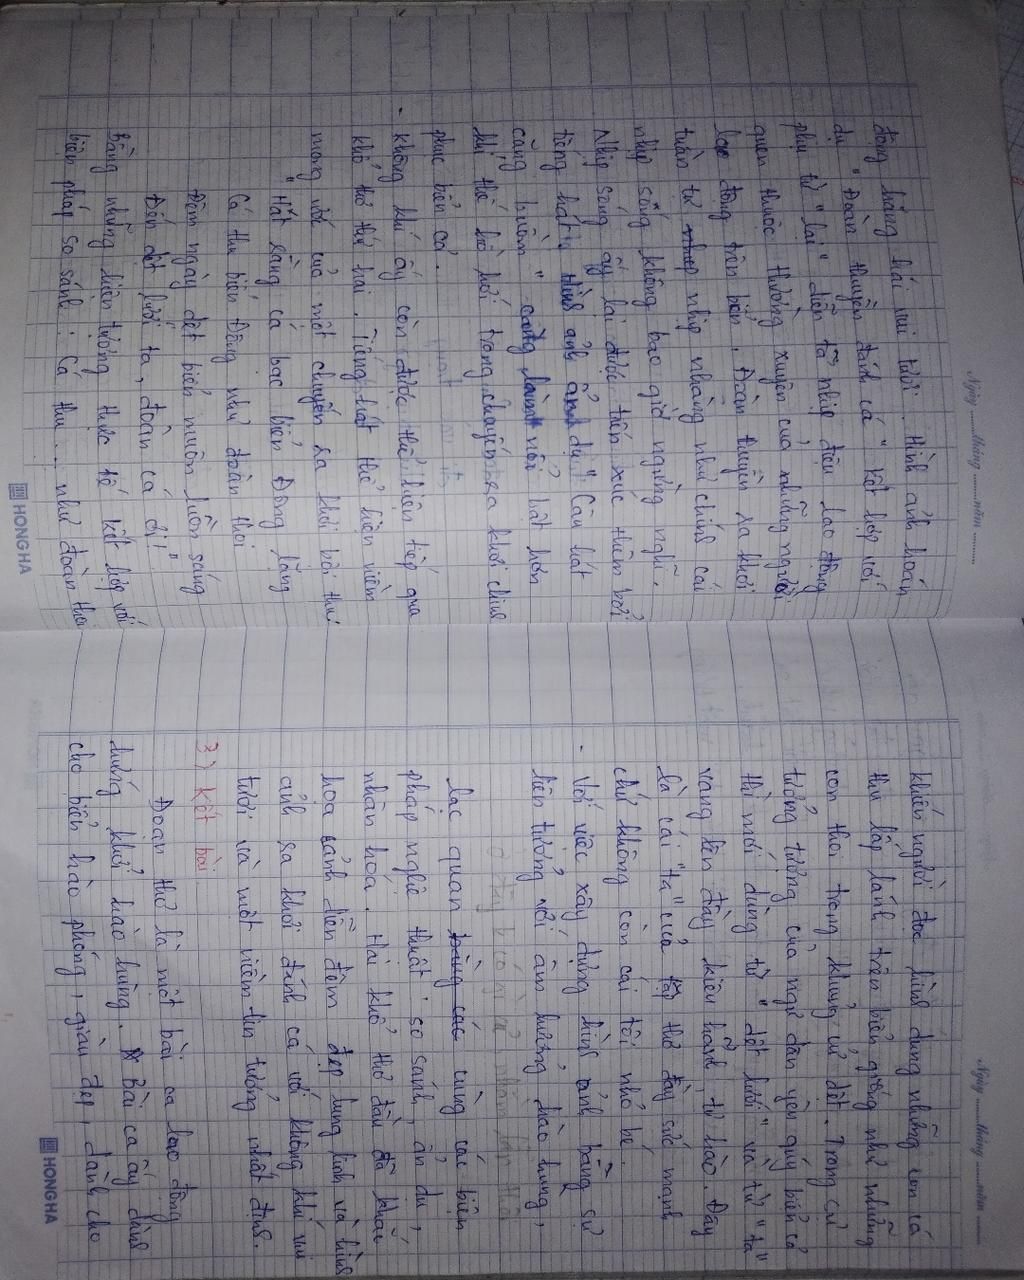 Ngày ........tháng ........năm ............
động hăng hái vui tươi. Hình ảnh hoán
dụ "Đoàn thuyền đánh cá" kết hợp với
phụ từ "lại" diễn tả nhịp điệu lao động
quen thuộc thường xuyên của những người
lao động trên biển. Đoàn thuyền ra khơi
tuần tự nhịp nhàng như chính cái
nhịp sống không bao giờ ngừng nghỉ.
Nhịp sống ấy lại được tiếp xúc thêm bởi
tiếng hát, hình ảnh ẩn dụ "Câu hát
căng buồm" càng làm nổi bật hơn
khí thế hồ hởi trong chuyến ra khơi chinh
phục biển cả.
Không khí ấy còn được thể hiện tiếp qua
khổ thơ thứ hai. Tiếng hát thể hiện niềm
mong ước của một chuyến ra khơi bội thu
"Hát rằng cá bạc biển Đông lặng
Cá thu biển Đông như đoàn thoi
Đêm ngày dệt biển muôn luồng sáng
Đến dệt lưới ta, đoàn cá ơi!"
Bằng những hiện tượng thực tế kết hợp với
biện pháp so sánh: Cá thu ... như đoàn thoi
HONG HA
Ngày ........tháng ........năm ............
khiến người đọc hình dung những con cá
thu lấp lánh trên biển giống như những
con thoi trong khung cử dệt. Trong sự
tưởng tượng của ngư dân yêu quý biển cả
thì mới dùng từ "dệt lưới" và từ "ta"
vang lên đầy kiêu hãnh, tự hào. Đây
là cái "ta" của tập thể đầy sức mạnh
chứ không còn cái tôi nhỏ bé.
Với việc xây dựng hình ảnh bằng sự
liên tưởng với âm hưởng hào hùng,
lạc quan cùng các biện
pháp nghệ thuật: so sánh, ẩn dụ,
nhân hoá. Hai khổ thơ đầu đã khắc
hoạ cảnh biển đêm đẹp lung linh và hình
ảnh ra khơi đánh cá với không khí vui
tươi và một niềm tin tưởng nhất định.
3) Kết bài
Đoạn thơ là một bài ca lao động
hứng khởi hào hùng. Bài ca ấy dành
cho biển hào phóng, giàu đẹp, dành cho
HONG HA